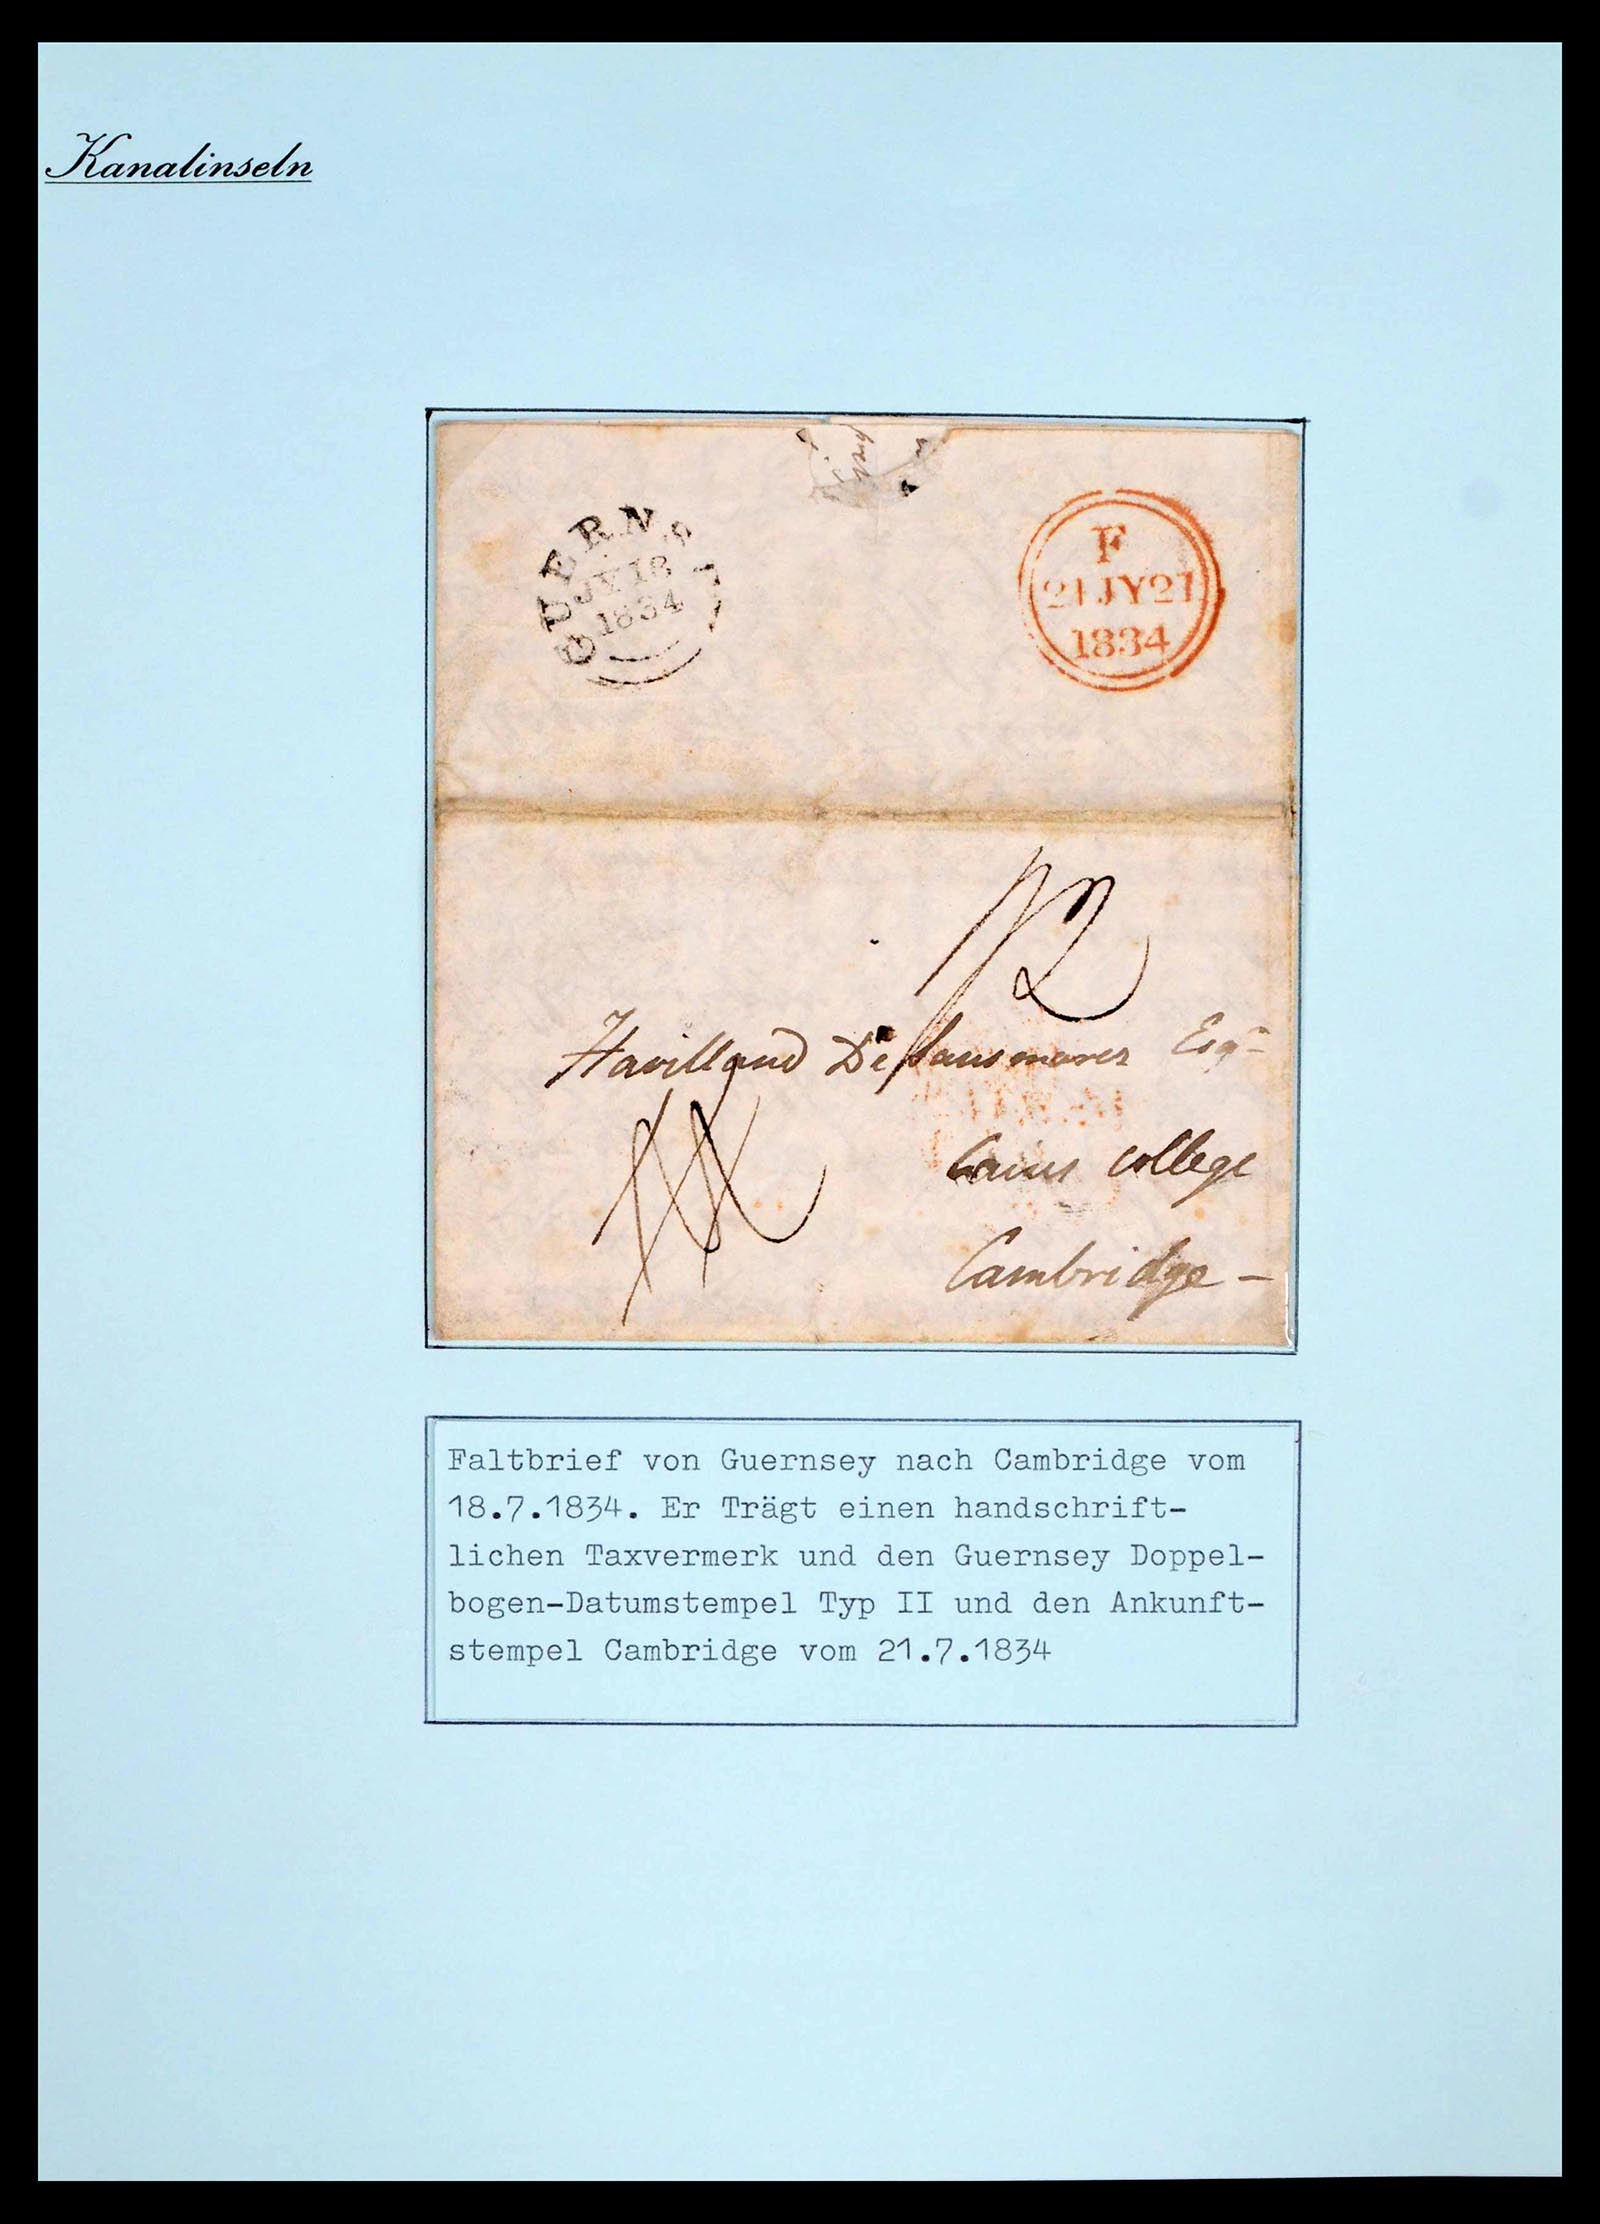 Kanalinseln
GUERNSEY
JY 18
1834
F
21 JY 21
1834
1/2
Havilland De Sausmarez Esqr
Caius College
Cambridge -
Faltbrief von Guernsey nach Cambridge vom
18.7.1834. Er Trägt einen handschrift-
lichen Taxvermerk und den Guernsey Doppel-
bogen-Datumstempel Typ II und den Ankunft-
stempel Cambridge vom 21.7.1834